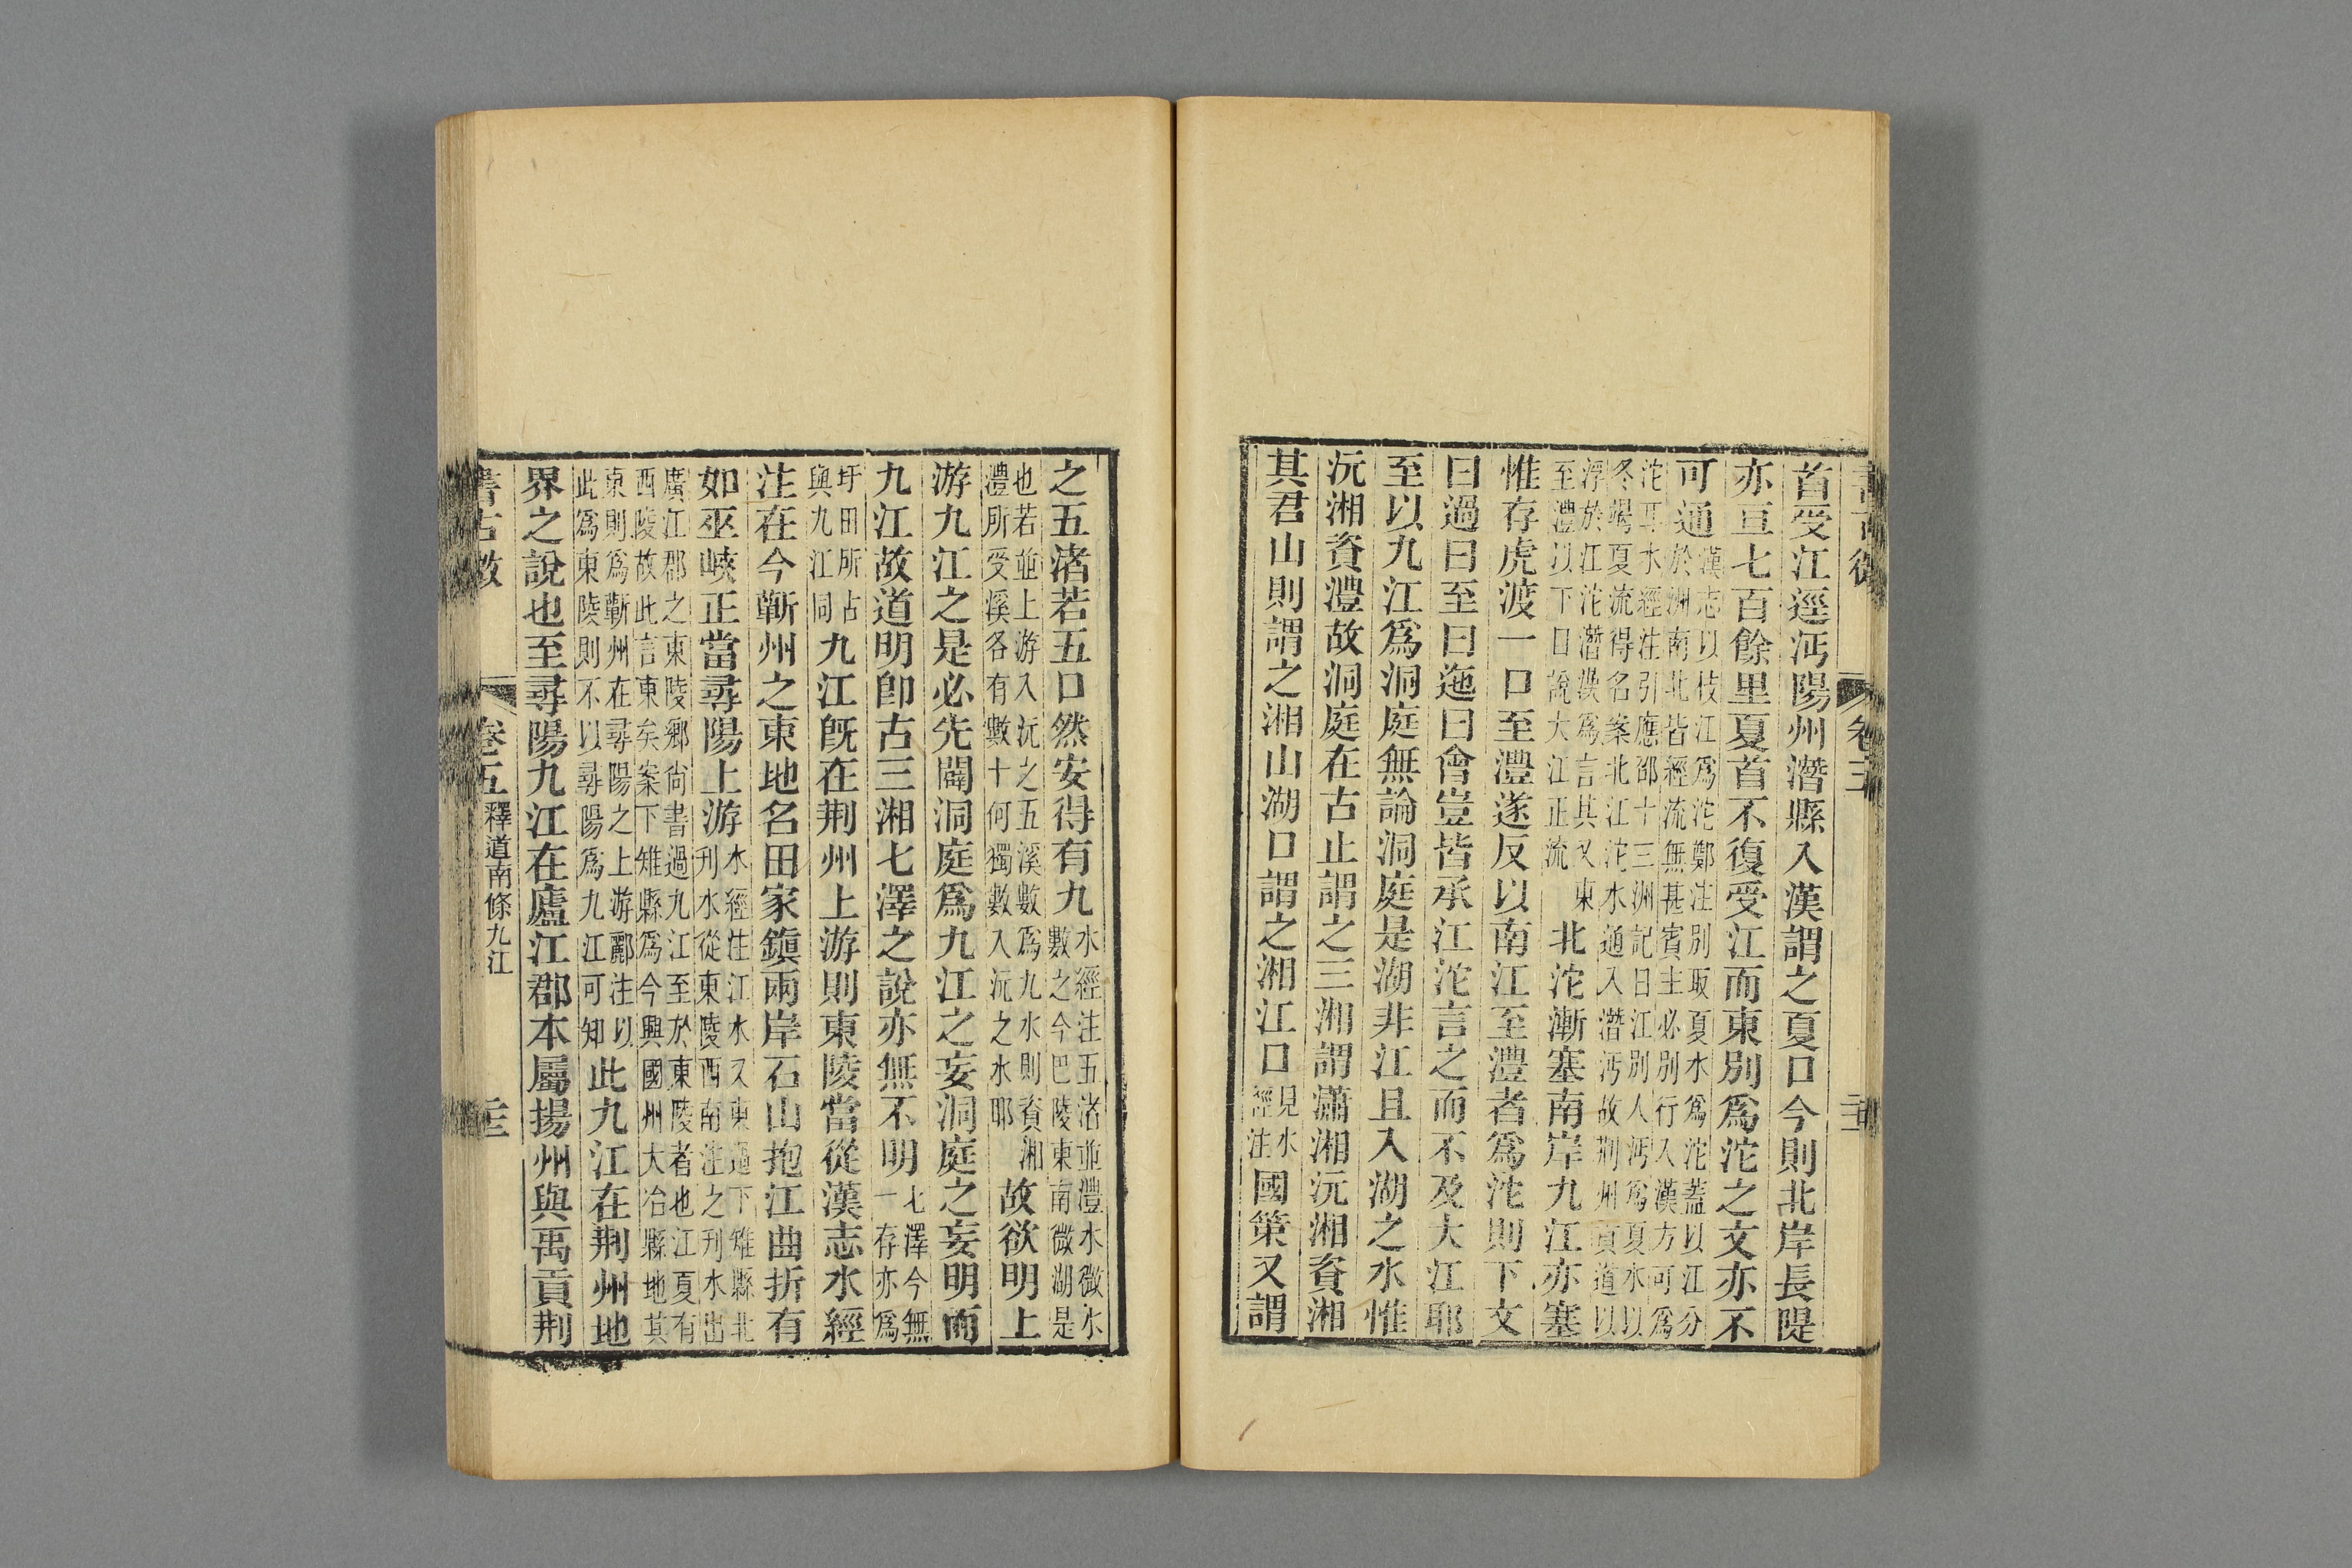 首受江逕沔陽州潛縣入漢謂之夏口今則北岸長隄
亦亘七百餘里夏首不復受江而東別爲沱之文亦不
可通漢志以枝江爲沱鄭注別取夏水爲沱蓋以江分
於洲南北皆經流無甚賓主必別行入漢方可爲
沱耳水經注引應邵十三洲記曰江別入沔爲夏水以
冬竭夏流得名案北江沱水通入潛沔故荆州貢道以
浮於江沱潛漢爲言其又東
至澧以下曰說大江正流北沱漸塞南岸九江亦塞
惟存虎渡一口至澧遂反以南江至澧者爲沱則下文
曰過曰至曰迤曰會豈皆承江沱言之而不及大江耶
至以九江爲洞庭無論洞庭是湖非江且入湖之水惟
沅湘資澧故洞庭在古止謂之三湘謂瀟湘沅湘資湘
其君山則謂之湘山湖口謂之湘江口見水
經注國策又謂
之五渚若五口然安得有九水經注五渚並澧水微水
數之今巴陵東南微湖是
也若並上游入沅之五溪數爲九水則資湘
澧所受溪各有數十何獨數入沅之水耶故欲明上
游九江之是必先闢洞庭爲九江之妄洞庭之妄明而
九江故道明卽古三湘七澤之說亦無不明七澤今無
一存亦爲
圩田所占
與九江同九江旣在荆州上游則東陵當從漢志水經
注在今蘄州之東地名田家鎮兩岸石山抱江曲折有
如巫峽正當尋陽上游水經注江水又東逕下雉縣北
刋水從東陵西南注之刋水出
廣江郡之東陵鄉尙書過九江至於東陵者也江夏有
西陵故此言東矣案下雉縣爲今興國州大冶縣地其
東則爲蘄州在尋陽之上游酈注以
此爲東陵則不以尋陽爲九江可知此九江在荆州地
界之說也至尋陽九江在廬江郡本屬揚州與禹貢荆
書古微 卷五 釋道南條九江